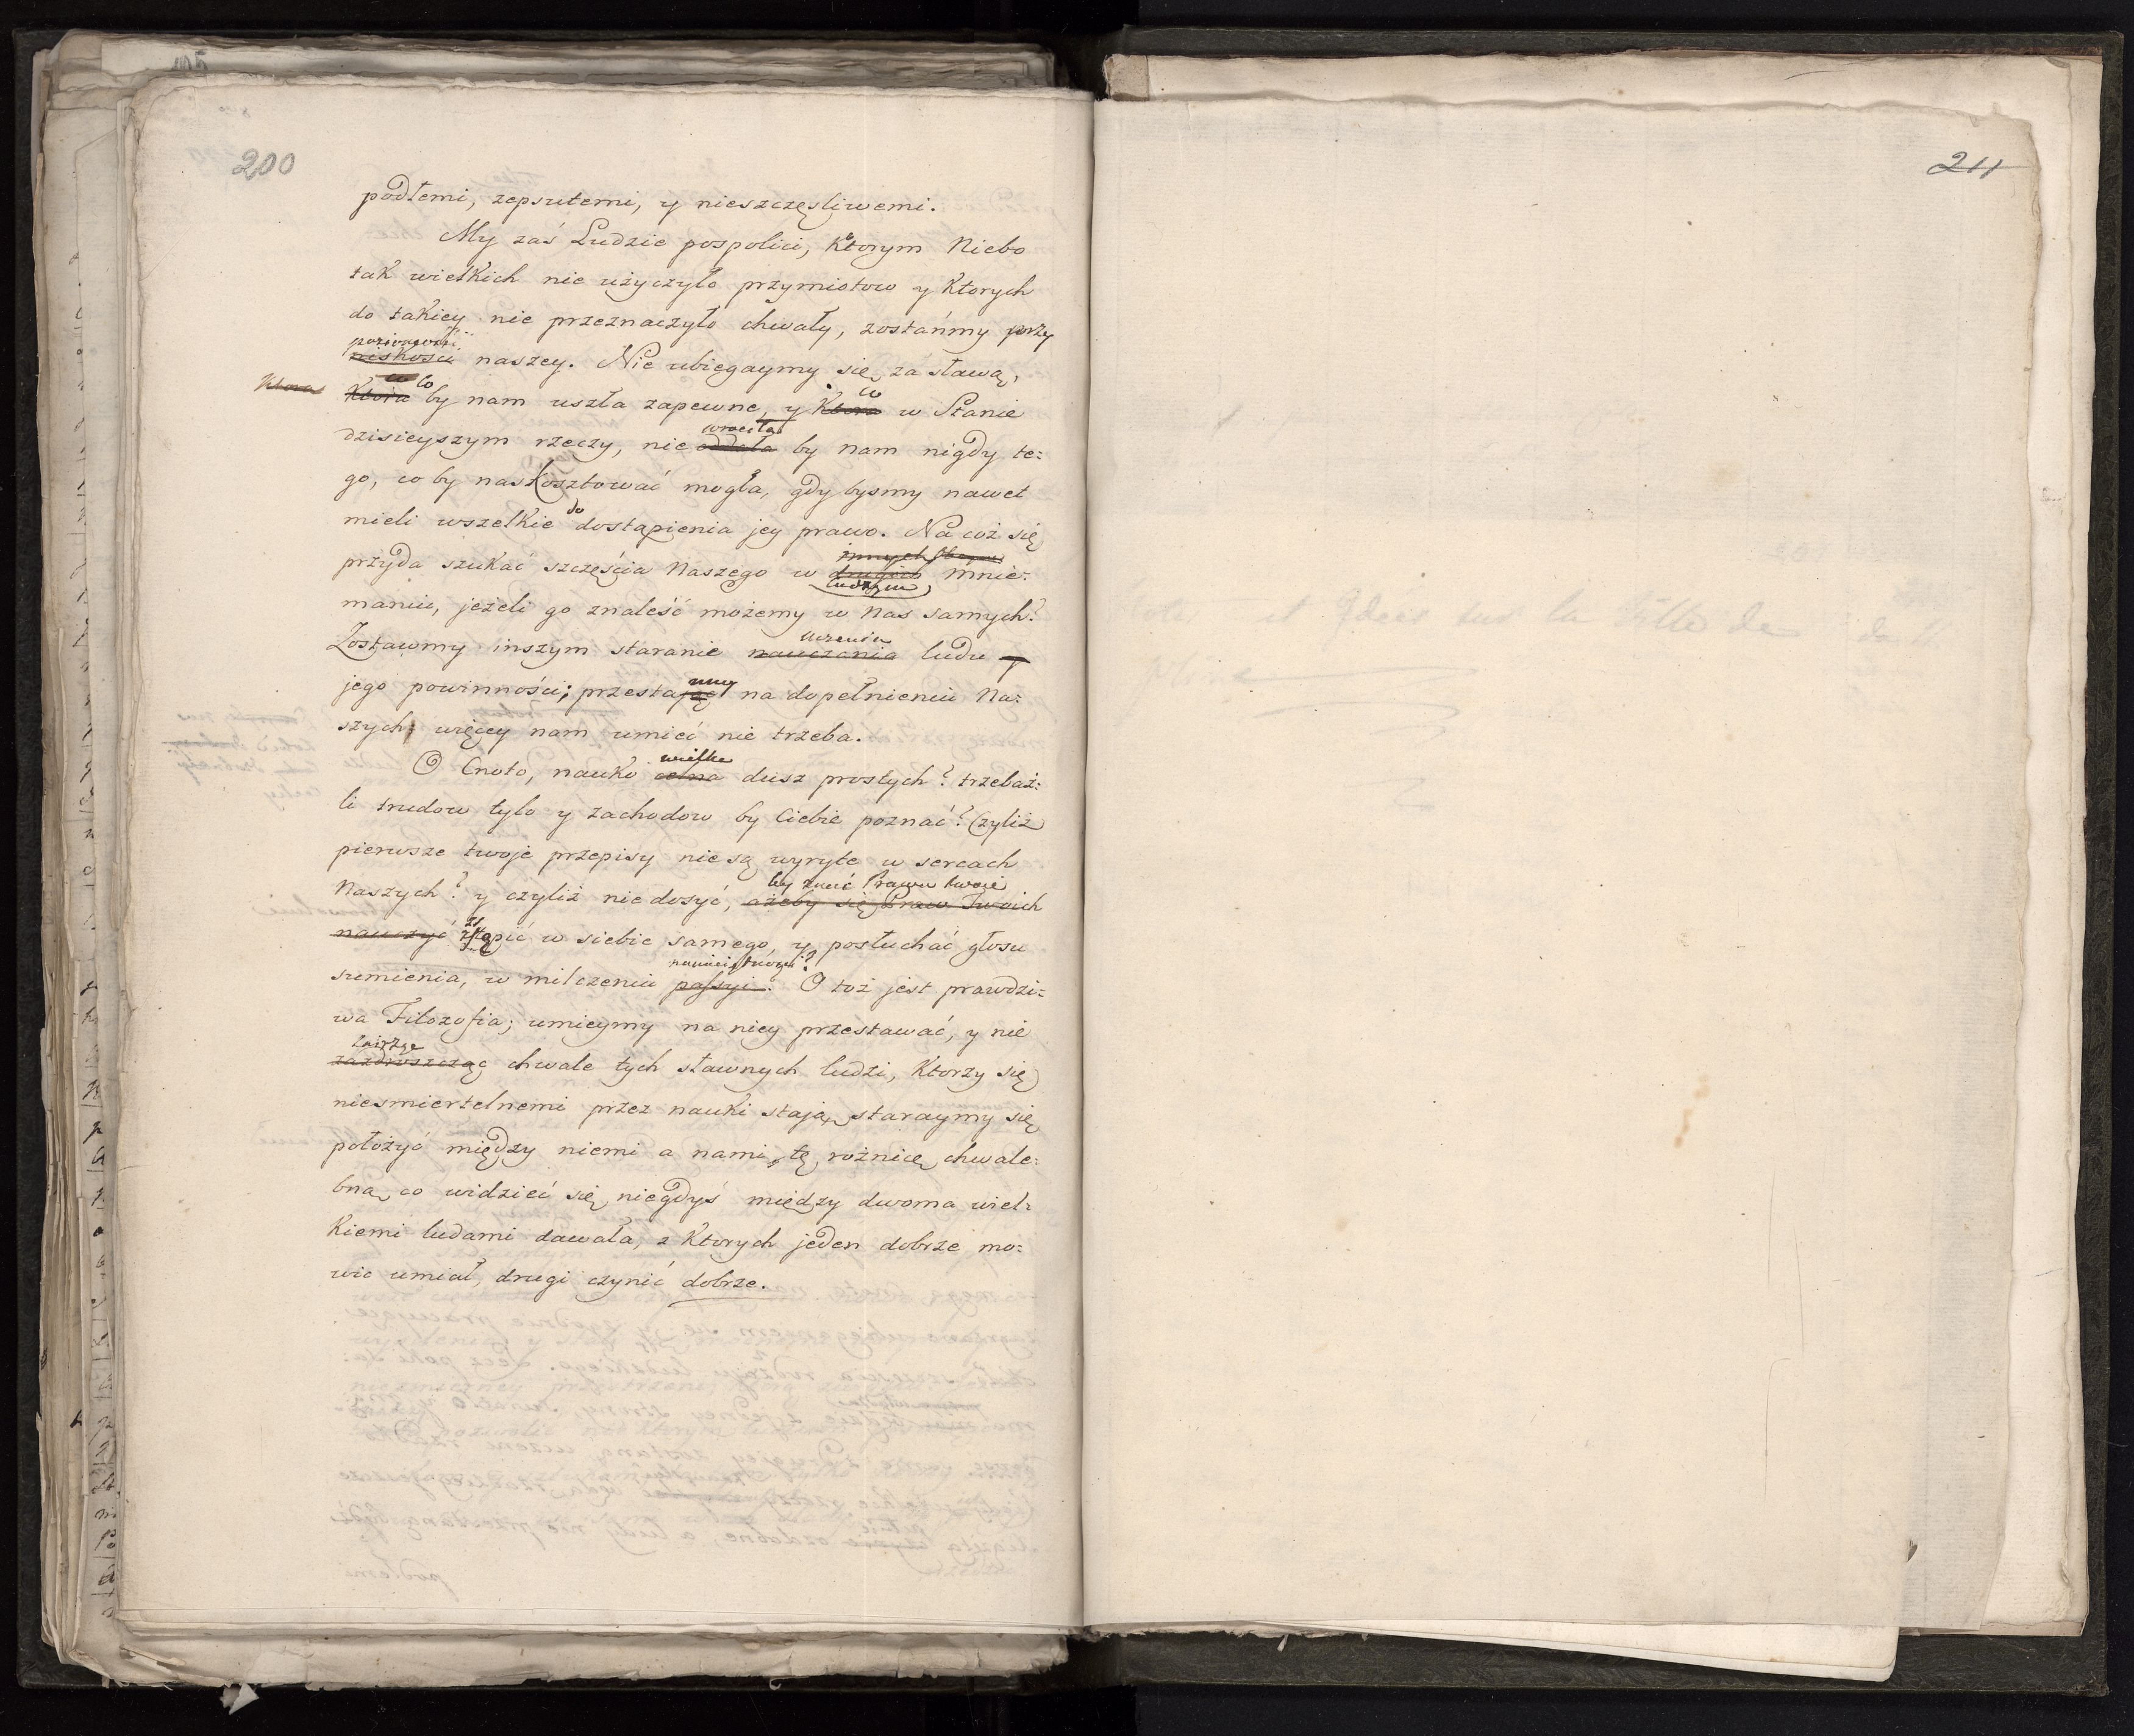 200
podłemi, zepsutemi, y nieszczęsliwemi.
My zaś Ludzie pospolici, Ktorym Niebo
tak wielkich nie użyczyło przymiotow y Ktorych
do takiey nie przeznaczyło chwały, zostańmy przy
poziomości
niskości naszey. Nie ubiegaymy się za sławą,
Ktora
co co
Ktora by nam uszła zapewne, y Ktora w Stanie
wrociła
dzisieyszym rzeczy, nie oddała by nam nigdy te=
go, co by nas Kosztować mogła, gdy bysmy nawet
do
mieli wszelkie dostąpienia jey prawo. Na coż się
innych
przyda szukać szczęścia Naszego w drugich mnie=
cudzym
maniu, jeżeli go znaleść możemy w Nas samych?
uczenia
Zostawmy inszym staranie nauczania ludu y
my
jego powinności; przestając na dopełnieniu Na=
szych; więcey nam umieć nie trzeba.
wielka
O Cnoto, nauko dusz prostych? trzebaż=
li trudow tylo y zachodow by Ciebie poznać? Czyliż
pierwsze twoje przepisy nie są wyryte w sercach
by znać Prawa twoje
Naszych? y czyliż nie dosyć, ażeby się Praw Twoich
nauczyć wstąpić w siebie samego, y posłuchać głosu
namiętności?
sumienia, w milczeniu passyi. O toż jest prawdzi=
wa Filozofia; umieymy na niey przestawać, y nie
zajrząc
zazdroszcząc chwale tych sławnych ludzi, Ktorzy się
niesmiertelnemi przez nauki stają, staraymy się
położyć między niemi a nami, tę rożnicę chwale=
bną co widzieć się niegdyś między dwoma wiel=
Kiemi ludami dawała, z Ktorych jeden dobrze mo=
wic umiał, drugi czynić dobrze.
211